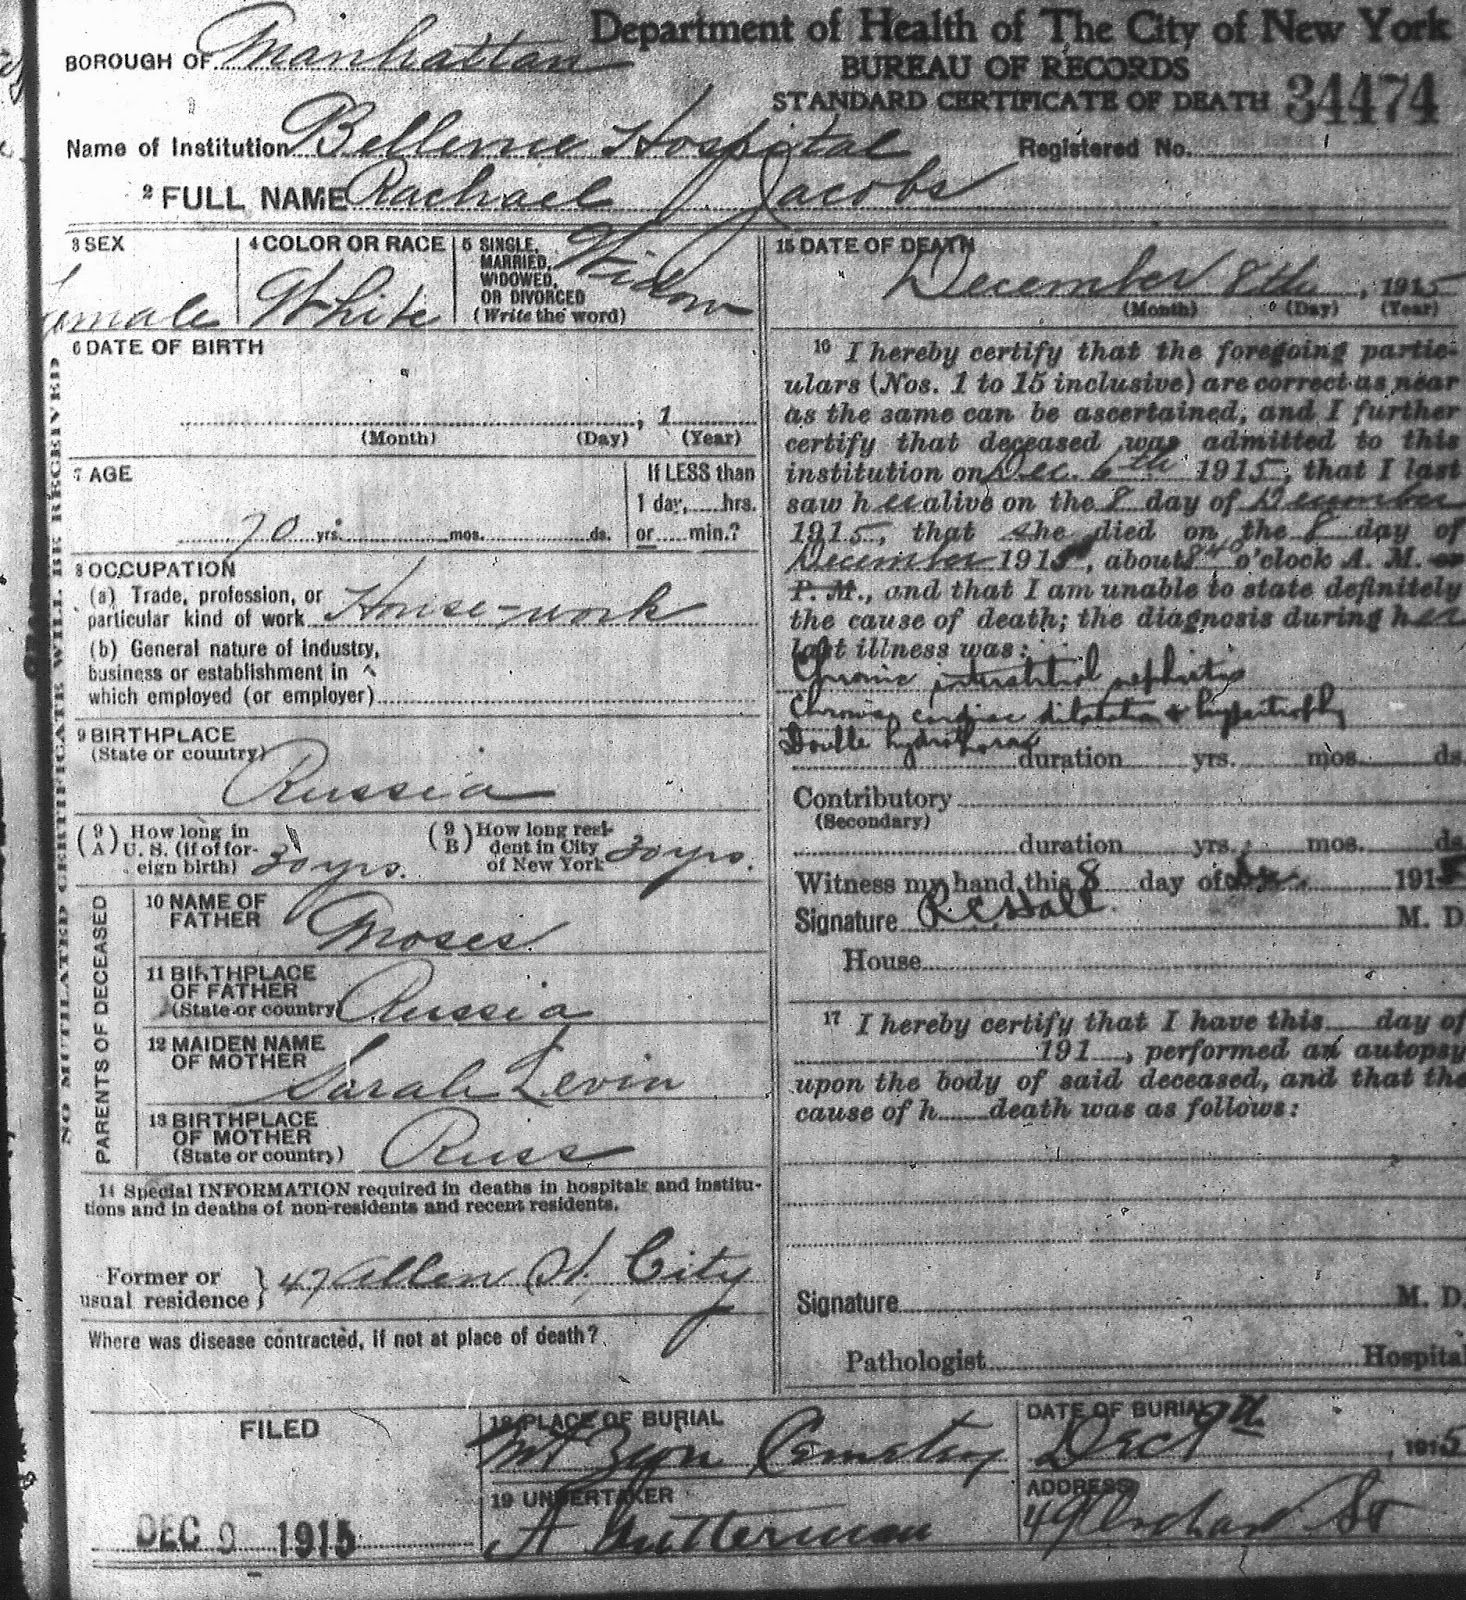 Department of Health of The City of New York
BOROUGH OF Manhattan
BUREAU OF RECORDS
STANDARD CERTIFICATE OF DEATH 34474
Name of Institution Bellevue Hospital
Registered No.
2 FULL NAME Rachael Jacobs
3 SEX
Female
4 COLOR OR RACE
White
5 SINGLE,
MARRIED,
WIDOWED,
OR DIVORCED
(Write the word)
Widow
6 DATE OF BIRTH
, 1
(Month) (Day) (Year)
7 AGE
70 yrs. mos. ds.
If LESS than
1 day, hrs.
or min.?
8 OCCUPATION
(a) Trade, profession, or
particular kind of work House-work
(b) General nature of Industry,
business or establishment in
which employed (or employer)
9 BIRTHPLACE
(State or country)
Russia
(9 A) How long in
U. S. (if of for-
eign birth) 30 yrs.
(9 B) How long resi-
dent in City
of New York 30 yrs.
PARENTS OF DECEASED
10 NAME OF
FATHER Moses
11 BIRTHPLACE
OF FATHER
(State or country) Russia
12 MAIDEN NAME
OF MOTHER
Sarah Levin
13 BIRTHPLACE
OF MOTHER
(State or country) Russ
14 Special INFORMATION required in deaths in hospitals and institu-
tions and in deaths of non-residents and recent residents.
Former or
usual residence } 47 Allen St. City
Where was disease contracted, if not at place of death?
15 DATE OF DEATH
December 8th, 1915
(Month) (Day) (Year)
16 I hereby certify that the foregoing partic-
ulars (Nos. 1 to 15 inclusive) are correct as near
as the same can be ascertained, and I further
certify that deceased was admitted to this
institution on Dec. 6th 1915, that I last
saw her alive on the 8 day of December
1915, that she died on the 8 day of
December 1915, about 840 o'clock A. M. or
P. M., and that I am unable to state definitely
the cause of death; the diagnosis during her
last illness was:
Chronic interstitial nephritis
Chronic cardiac dilatation & hypertrophy
Double hydrothorax
duration yrs. mos. ds.
Contributory
(Secondary)
duration yrs. mos. ds.
Witness my hand this 8 day of Dec. 1915
Signature R. C. Hall M. D.
House
17 I hereby certify that I have this day of
191 , performed an autopsy
upon the body of said deceased, and that the
cause of h death was as follows:
Signature M. D.
Pathologist Hospital
FILED
DEC 9 1915
18 PLACE OF BURIAL
Mt Zion Cemetery
DATE OF BURIAL
Dec 9th, 1915
19 UNDERTAKER
A Gutterman
ADDRESS
49 Orchard St
NO MUTILATED CERTIFICATE WILL BE RECEIVED